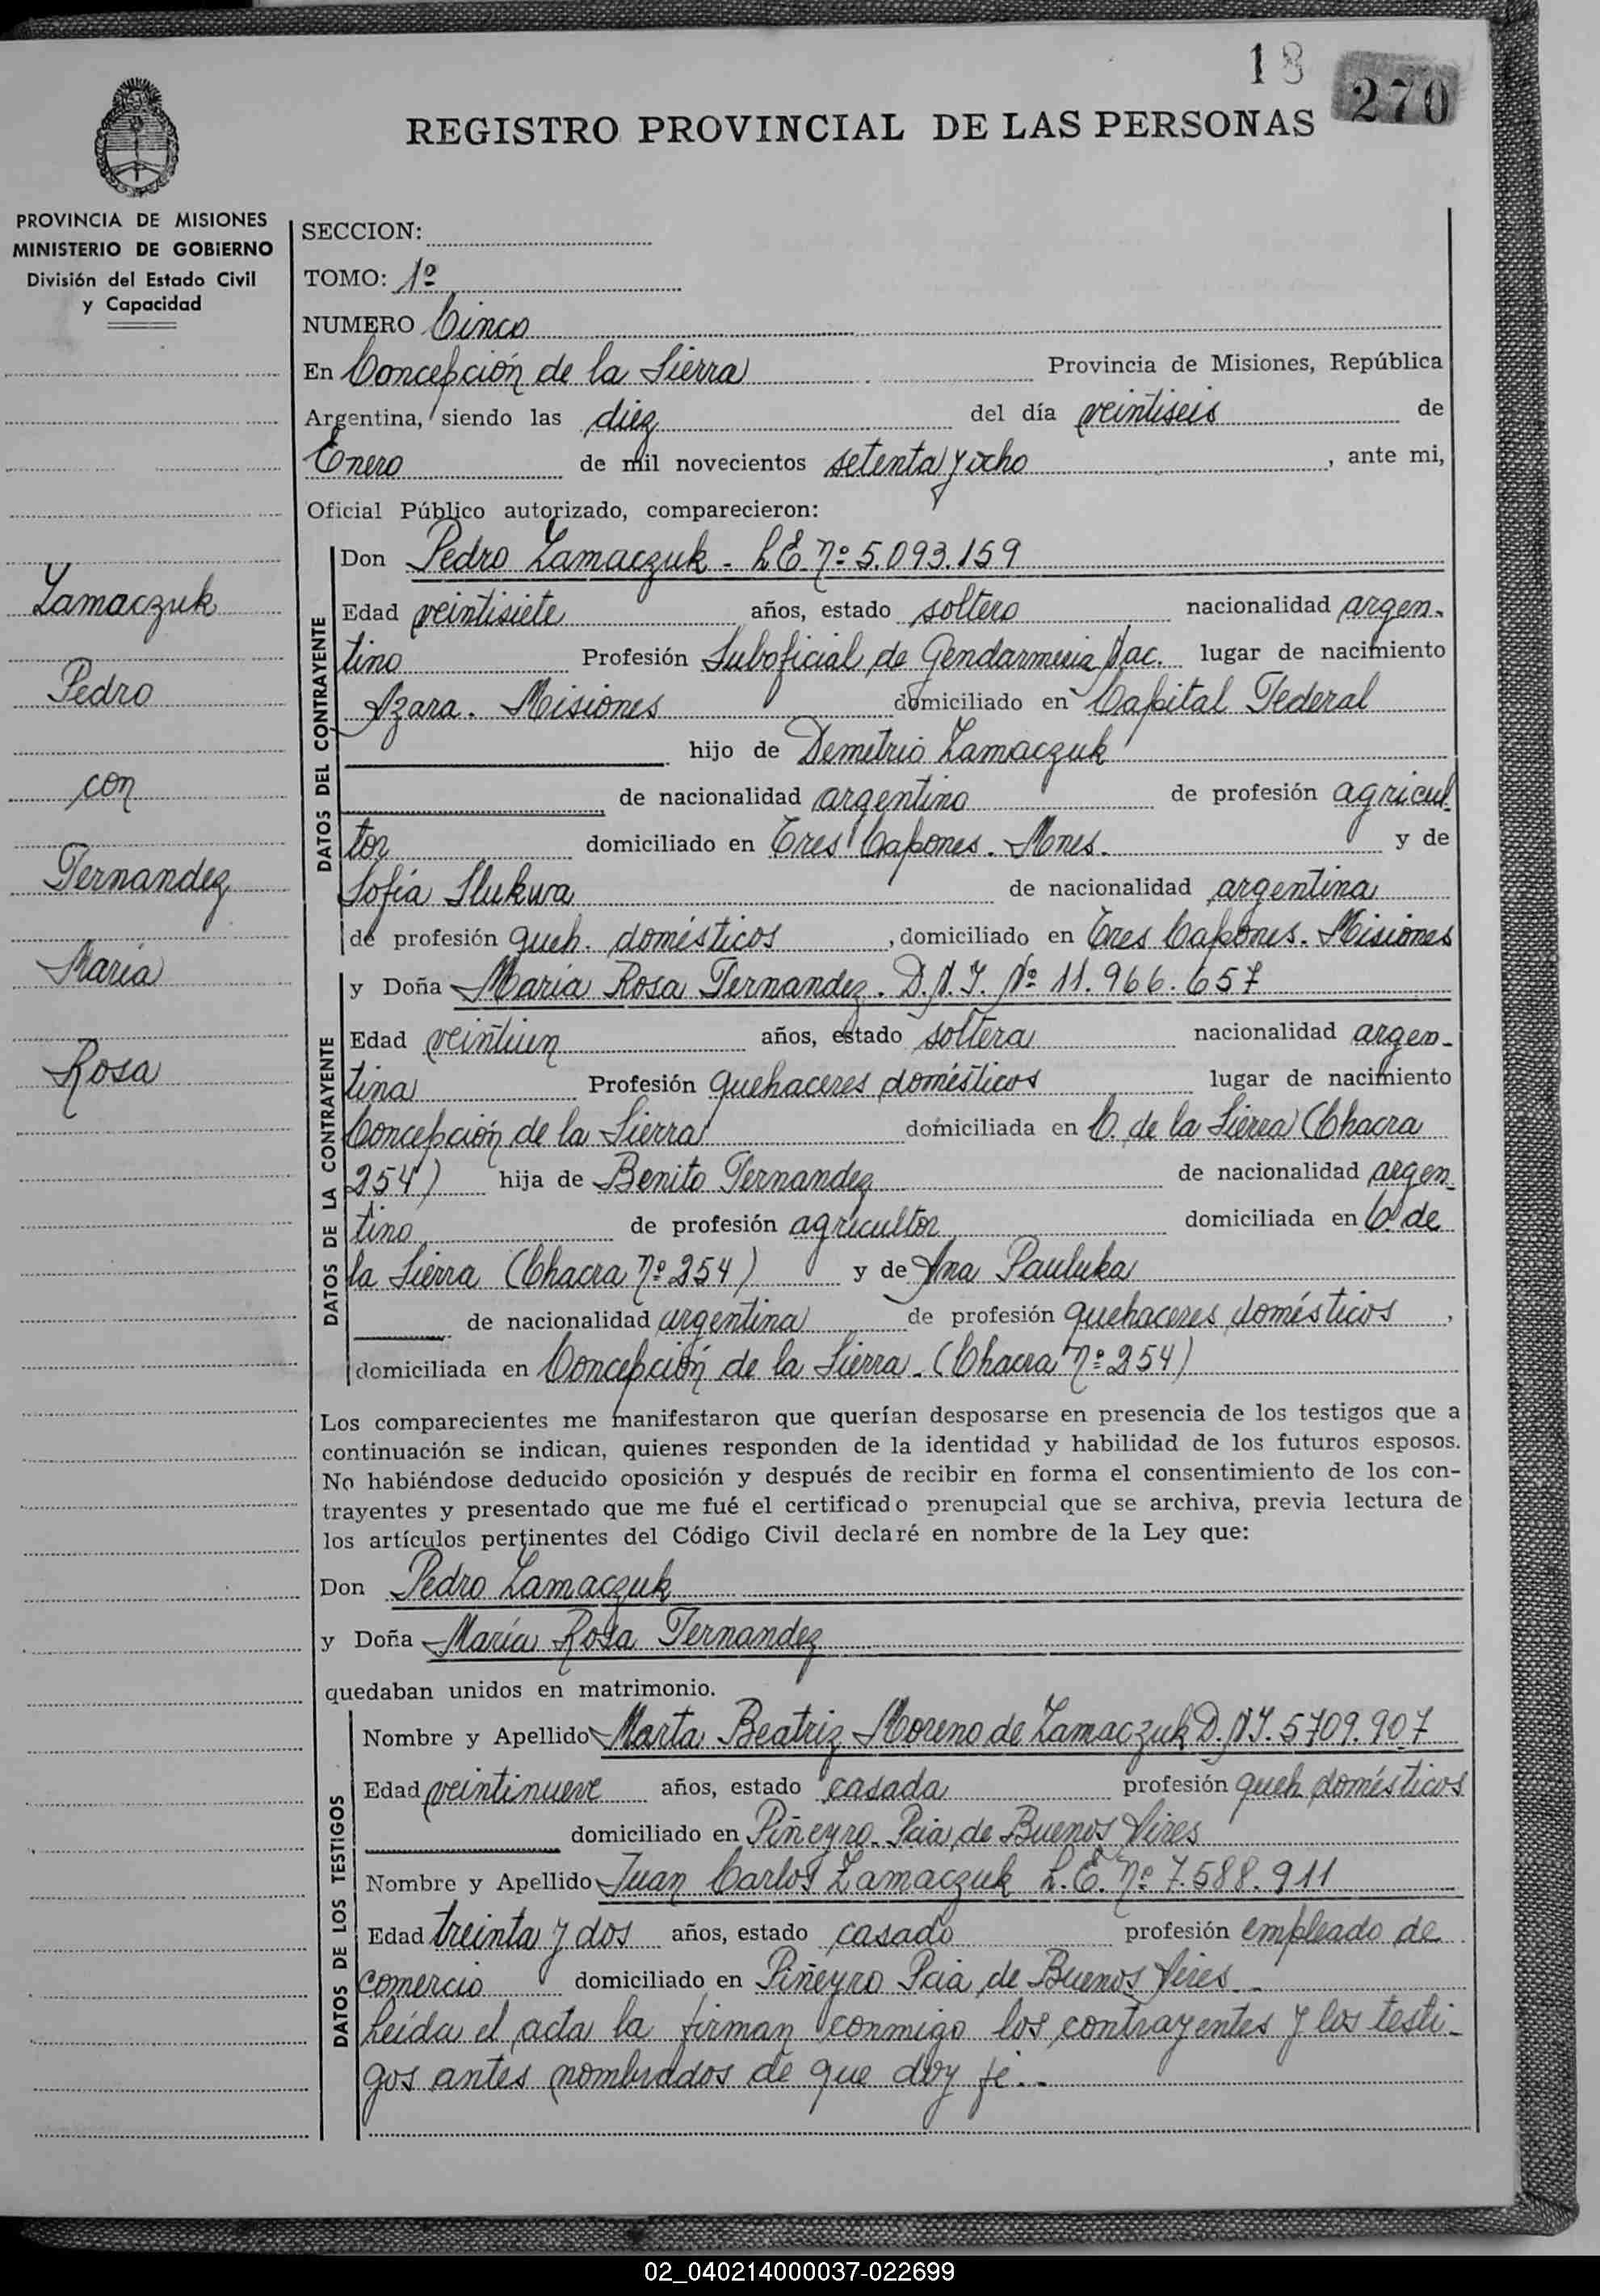 18
270
REGISTRO PROVINCIAL DE LAS PERSONAS
PROVINCIA DE MISIONES
MINISTERIO DE GOBIERNO
División del Estado Civil
y Capacidad
Zamaczuk
Pedro
con
Fernandez
Maria
Rosa
SECCION:
TOMO: 1º
NUMERO Cinco
En Concepción de la Sierra Provincia de Misiones, República
Argentina, siendo las diez del día veintiseis de
Enero de mil novecientos setenta y ocho, ante mi,
Oficial Público autorizado, comparecieron:
DATOS DEL CONTRAYENTE
Don Pedro Zamaczuk - L.E. Nº 5.093.159
Edad veintisiete años, estado soltero nacionalidad argen-
tino Profesión Suboficial de Gendarmeria Nac. lugar de nacimiento
Azara. Misiones domiciliado en Capital Federal
hijo de Demetrio Zamaczuk
de nacionalidad argentino de profesión agricul
tor domiciliado en Tres Capones. Mnes. y de
Sofía Slukwa de nacionalidad argentina
de profesión queh. domésticos, domiciliado en Tres Capones. Misiones
DATOS DE LA CONTRAYENTE
y Doña Maria Rosa Fernandez. D.N.I. Nº 11.966.657
Edad veintiun años, estado soltera nacionalidad argen-
tina Profesión quehaceres domésticos lugar de nacimiento
Concepción de la Sierra domiciliada en C. de la Sierra (Chacra
254) hija de Benito Fernandez de nacionalidad argen-
tino de profesión agricultor domiciliada en C. de
la Sierra (Chacra Nº 254) y de Ana Pauluka
de nacionalidad argentina de profesión quehaceres domésticos,
domiciliada en Concepción de la Sierra - (Chacra Nº 254)
Los comparecientes me manifestaron que querían desposarse en presencia de los testigos que a
continuación se indican, quienes responden de la identidad y habilidad de los futuros esposos.
No habiéndose deducido oposición y después de recibir en forma el consentimiento de los con-
trayentes y presentado que me fué el certificado prenupcial que se archiva, previa lectura de
los artículos pertinentes del Código Civil declaré en nombre de la Ley que:
Don Pedro Zamaczuk
y Doña María Rosa Fernandez
quedaban unidos en matrimonio.
DATOS DE LOS TESTIGOS
Nombre y Apellido Marta Beatriz Moreno de Zamaczuk D.N.I. 5709.907
Edad veintinueve años, estado casada profesión queh domésticos
domiciliado en Piñeyro - Pcia de Buenos Aires
Nombre y Apellido Juan Carlos Zamaczuk L.E. Nº 7.588.911
Edad treinta y dos años, estado casado profesión empleado de
comercio domiciliado en Piñeyro Pcia de Buenos Aires -
Leída el acta la firman conmigo los contrayentes y los testi-
gos antes nombrados de que doy fe.-
02_040214000037-022699